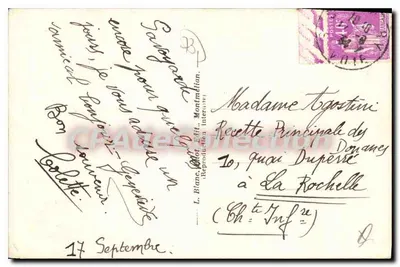 Savoyarde
encore pour quelques
jours, je vous adresse un
amical bonjour
Bon souvenir.
Colette
17 Septembre.
L. Blanc, Montmélian.
(Reproduction interdite)
Madame Agostini
Recette Principale des
Douanes
10, quai Duperré
à La Rochelle
(Chte Infre)